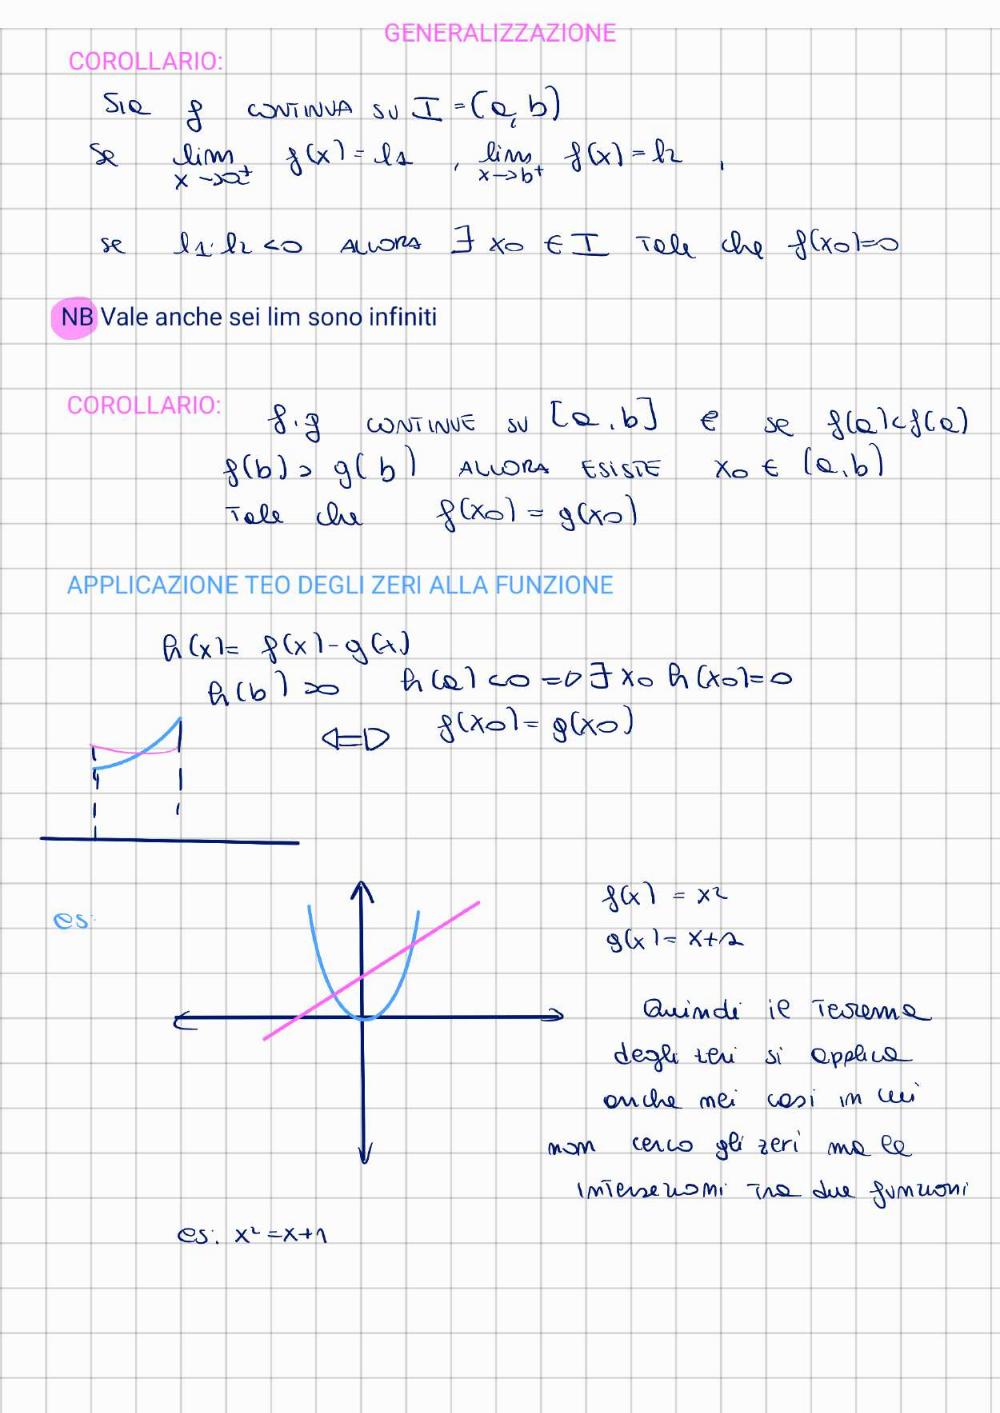 GENERALIZZAZIONE
COROLLARIO:
Sia f CONTINUA SU I = (a, b)
Se lim x→a+ f(x) = l1 , lim x→b+ f(x) = l2 ,
se l1·l2 <0 ALLORA ∃ x0 ∈ I Tale che f(x0)=0
NB Vale anche sei lim sono infiniti
COROLLARIO: f.g CONTINUE SU [a.b] e se f(a)<f(a)
f(b)> g(b) ALLORA ESISTE x0 ∈ (a.b)
Tale che f(x0) = g(x0)
APPLICAZIONE TEO DEGLI ZERI ALLA FUNZIONE
h(x)= f(x)-g(x)
h(b) >0 h(a) <0 => ∃ x0 h(x0)=0
<=> f(x0)= g(x0)
es:
f(x) = x²
g(x)= x+1
Quindi il Teorema
degli zeri si applica
anche nei casi in cui
non cerco gli zeri ma le
intersezioni tra due funzioni
es: x² =x+1